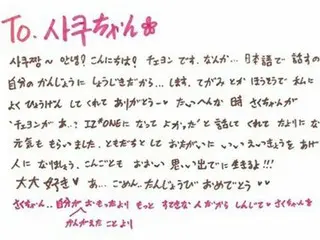 To. 사쿠쨩
사쿠짱~ 안녕? こんにちは? チェヨン です. なんか... 日本語で 話すの
自分の かんじょうに しょうじきだから... します. てがみ とか ほうそうで 私に
よく ひょうげん して くれて ありがとう~♡ たいへんな 時 さくちゃんが
'チェヨンが あ..? IZ*ONEに なって よかった' と 話して くれて たよりに なって
元気も もらいました. ともだちとして おたがいに いい えいきょうを あげる
人に なりましょう. こんごとも おおい 思い出で 生きるよ!!!
大大 好き♥ あ... ごめん.. たんじょうび おめでとう ♥♥
さくちゃん.. 自分が おもったより もっと すてきな 人だから しんじて♥ さくちゃんを
かんがえた ことより